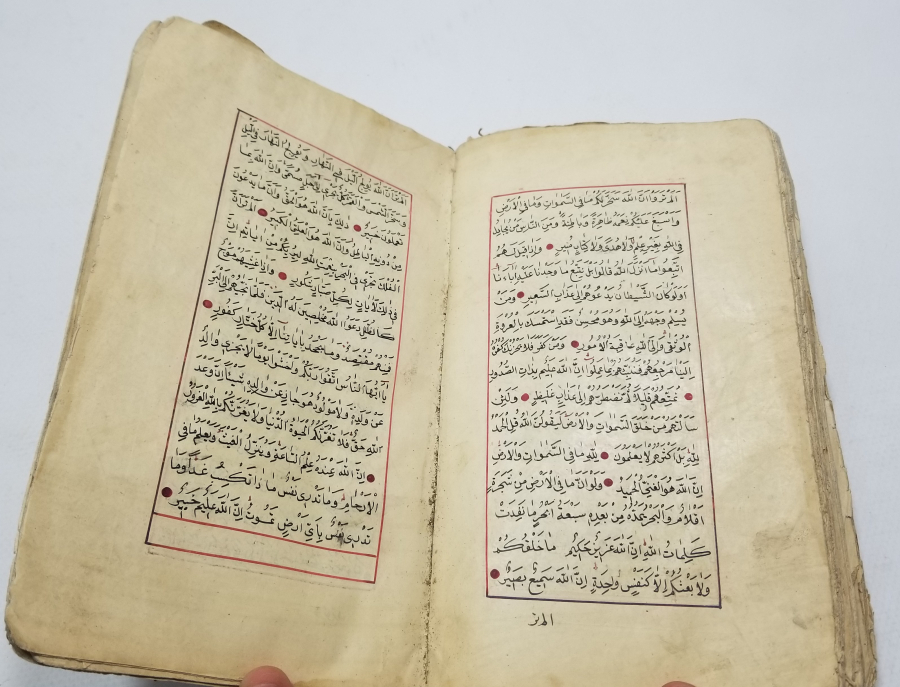 اَلَمْ تَرَوْا اَنَّ اللّٰهَ سَخَّرَ لَكُمْ مَا فِي السَّمٰوَاتِ وَمَا فِي الْاَرْضِ
وَاَسْبَغَ عَلَيْكُمْ نِعَمَهُ ظَاهِرَةً وَبَاطِنَةً وَمِنَ النَّاسِ مَنْ يُجَادِلُ
فِي اللّٰهِ بِغَيْرِ عِلْمٍ وَلَا هُدًى وَلَا كِتَابٍ مُنِيرٍ وَاِذَا قِيلَ لَهُمُ
اتَّبِعُوا مَا اَنْزَلَ اللّٰهُ قَالُوا بَلْ نَتَّبِعُ مَا وَجَدْنَا عَلَيْهِ اٰبَاءَنَا
اَوَلَوْ كَانَ الشَّيْطَانُ يَدْعُوهُمْ اِلٰى عَذَابِ السَّعِيرِ وَمَنْ
يُسْلِمْ وَجْهَهُ اِلَى اللّٰهِ وَهُوَ مُحْسِنٌ فَقَدِ اسْتَمْسَكَ بِالْعُرْوَةِ
الْوُثْقٰى وَاِلَى اللّٰهِ عَاقِبَةُ الْاُمُورِ وَمَنْ كَفَرَ فَلَا يَحْزُنْكَ كُفْرُهُ
اِلَيْنَا مَرْجِعُهُمْ فَنُنَبِّئُهُمْ بِمَا عَمِلُوا اِنَّ اللّٰهَ عَلِيمٌ بِذَاتِ الصُّدُورِ
نُمَتِّعُهُمْ قَلِيلًا ثُمَّ نَضْطَرُّهُمْ اِلٰى عَذَابٍ غَلِيظٍ وَلَئِنْ
سَاَلْتَهُمْ مَنْ خَلَقَ السَّمٰوَاتِ وَالْاَرْضَ لَيَقُولُنَّ اللّٰهُ قُلِ الْحَمْدُ
لِلّٰهِ بَلْ اَكْثَرُهُمْ لَا يَعْلَمُونَ لِلّٰهِ مَا فِي السَّمٰوَاتِ وَالْاَرْضِ
اِنَّ اللّٰهَ هُوَ الْغَنِيُّ الْحَمِيدُ وَلَوْ اَنَّ مَا فِي الْاَرْضِ مِنْ شَجَرَةٍ
اَقْلَامٌ وَالْبَحْرُ يَمُدُّهُ مِنْ بَعْدِهِ سَبْعَةُ اَبْحُرٍ مَا نَفِدَتْ
كَلِمَاتُ اللّٰهِ اِنَّ اللّٰهَ عَزِيزٌ حَكِيمٌ مَا خَلْقُكُمْ
وَلَا بَعْثُكُمْ اِلَّا كَنَفْسٍ وَاحِدَةٍ اِنَّ اللّٰهَ سَمِيعٌ بَصِيرٌ
الم تر
اَلَمْ تَرَ اَنَّ اللّٰهَ يُولِجُ الَّيْلَ فِي النَّهَارِ وَيُولِجُ النَّهَارَ فِي الَّيْلِ
وَسَخَّرَ الشَّمْسَ وَالْقَمَرَ كُلٌّ يَجْرِي اِلٰى اَجَلٍ مُسَمًّى وَاَنَّ اللّٰهَ بِمَا
تَعْمَلُونَ خَبِيرٌ ذٰلِكَ بِاَنَّ اللّٰهَ هُوَ الْحَقُّ وَاَنَّ مَا يَدْعُونَ
مِنْ دُونِهِ الْبَاطِلُ وَاَنَّ اللّٰهَ هُوَ الْعَلِيُّ الْكَبِيرُ اَلَمْ تَرَ اَنَّ
الْفُلْكَ تَجْرِي فِي الْبَحْرِ بِنِعْمَتِ اللّٰهِ لِيُرِيَكُمْ مِنْ اٰيَاتِهِ اِنَّ
فِي ذٰلِكَ لَاٰيَاتٍ لِكُلِّ صَبَّارٍ شَكُورٍ وَاِذَا غَشِيَهُمْ مَوْجٌ
كَالظُّلَلِ دَعَوُا اللّٰهَ مُخْلِصِينَ لَهُ الدِّينَ فَلَمَّا نَجّٰيهُمْ اِلَى الْبَرِّ
فَمِنْهُمْ مُقْتَصِدٌ وَمَا يَجْحَدُ بِاٰيَاتِنَا اِلَّا كُلُّ خَتَّارٍ كَفُورٍ
يَا اَيُّهَا النَّاسُ اتَّقُوا رَبَّكُمْ وَاخْشَوْا يَوْمًا لَا يَجْزِي وَالِدٌ
عَنْ وَلَدِهِ وَلَا مَوْلُودٌ هُوَ جَازٍ عَنْ وَالِدِهِ شَيْئًا اِنَّ وَعْدَ
اللّٰهِ حَقٌّ فَلَا تَغُرَّنَّكُمُ الْحَيٰوةُ الدُّنْيَا وَلَا يَغُرَّنَّكُمْ بِاللّٰهِ الْغَرُورُ
اِنَّ اللّٰهَ عِنْدَهُ عِلْمُ السَّاعَةِ وَيُنَزِّلُ الْغَيْثَ وَيَعْلَمُ مَا فِي
الْاَرْحَامِ وَمَا تَدْرِي نَفْسٌ مَا ذَا تَكْسِبُ غَدًا وَمَا
تَدْرِي نَفْسٌ بِاَيِّ اَرْضٍ تَمُوتُ اِنَّ اللّٰهَ عَلِيمٌ خَبِيرٌ